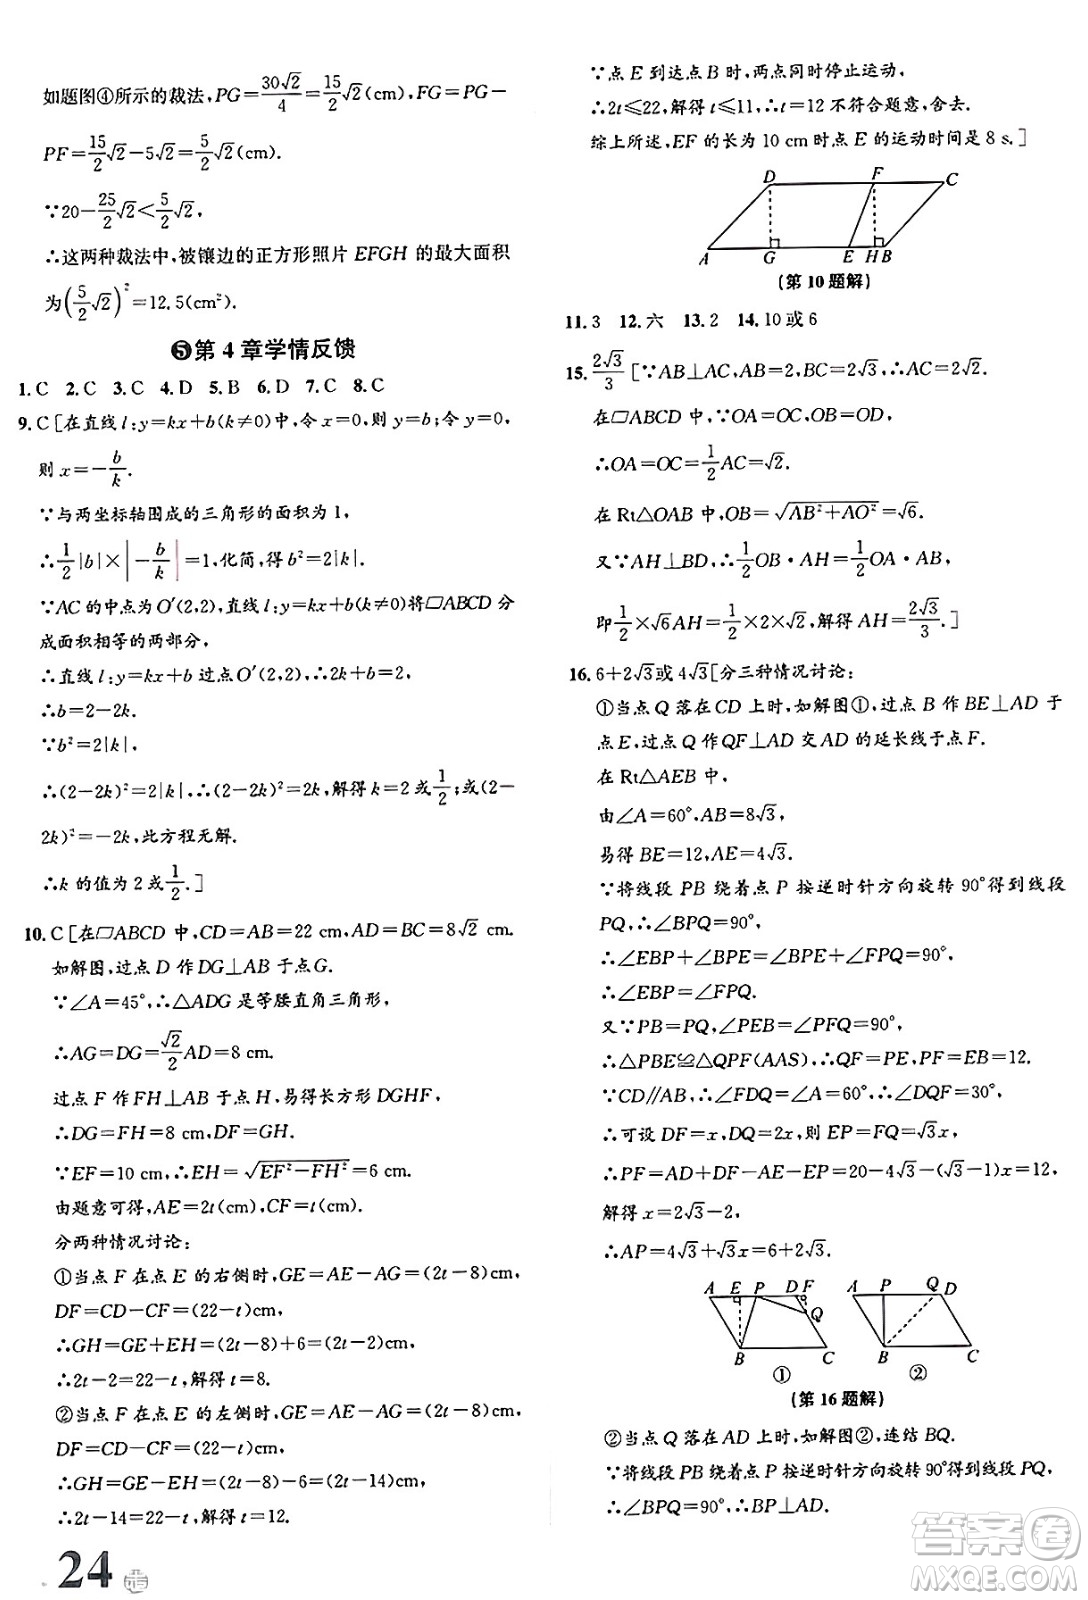 如题图④所示的裁法,PG=30√2/4=15/2√2(cm),FG=PG-
PF=15/2√2-5√2=5/2√2(cm).
∵20-25/2√2<5/2√2,
∴这两种裁法中,被镶边的正方形照片 EFGH 的最大面积
为(5/2√2)²=12.5(cm²).
❺第 4 章学情反馈
1.C 2.C 3.C 4.D 5.B 6.D 7.C 8.C
9.C[在直线 l:y=kx+b(k≠0)中,令 x=0,则 y=b,令 y=0,
则 x=-b/k.
∵与两坐标轴围成的三角形的面积为 1,
∴1/2|b|×|-b/k|=1,化简,得 b²=2|k|.
∵AC 的中点为 O′(2,2),直线 l:y=kx+b(k≠0)将▱ABCD 分
成面积相等的两部分,
∴直线 l:y=kx+b 过点 O′(2,2),∴2k+b=2,
∴b=2-2k.
∵b²=2|k|,
∴(2-2k)²=2|k|,∴(2-2k)²=2k,解得 k=2 或1/2,(2-
2k)²=-2k,此方程无解.
∴k 的值为 2 或1/2.]
10.C[在▱ABCD 中,CD=AB=22 cm,AD=BC=8√2 cm.
如解图,过点 D 作 DG⊥AB 于点G.
∵∠A=45°,∴△ADG 是等腰直角三角形,
∴AG=DG=√2/2AD=8 cm.
过点 F 作 FH⊥AB 于点 H,易得长方形 DGHF,
∴DG=FH=8 cm,DF=GH.
∵EF=10 cm,∴EH=√(EF²-FH²)=6 cm.
由题意可得,AE=2t(cm),CF=t(cm).
分两种情况讨论:
①当点 F 在点 E 的右侧时,GE=AE-AG=(2t-8)cm,
DF=CD-CF=(22-t)cm,
∴GH=GE+EH=(2t-8)+6=(2t-2)cm,
∴2t-2=22-t,解得 t=8.
②当点 F 在点 E 的左侧时,GE=AE-AG=(2t-8)cm,
DF=CD-CF=(22-t)cm,
∴GH=GE-EH=(2t-8)-6=(2t-14)cm,
∴2t-14=22-t,解得 t=12.
24
∵点 E 到达点 B 时,两点同时停止运动,
∴2t≤22,解得 t≤11,∴t=12 不符合题意,舍去.
综上所述,EF 的长为 10 cm 时点 E 的运动时间是 8 s.]
D F C
A G E H B
(第 10 题解)
11.3 12.六 13.2 14.10 或 6
15.2√3/3[∵AB⊥AC,AB=2,BC=2√3,∴AC=2√2.
在▱ABCD 中,∵OA=OC,OB=OD,
∴OA=OC=1/2AC=√2.
在 Rt△OAB 中,OB=√(AB²+AO²)=√6.
又∵AH⊥BD,∴1/2OB·AH=1/2OA·AB,
即1/2×√6AH=1/2×2×√2,解得 AH=2√3/3.]
16.6+2√3或 4√3[分三种情况讨论:
①当点 Q 落在 CD 上时,如解图①,过点 B 作 BE⊥AD 于
点 E,过点 Q 作 QF⊥AD 交 AD 的延长线于点 F.
在 Rt△AEB 中,
由∠A=60°,AB=8√3,
易得 BE=12,AE=4√3.
∵将线段 PB 绕着点 P 按逆时针方向旋转 90°得到线段
PQ,∴∠BPQ=90°,
∴∠EBP+∠BPE=∠BPE+∠FPQ=90°,
∴∠EBP=∠FPQ.
又∵PB=PQ,∠PEB=∠PFQ=90°,
∴△PBE≌△QPF(AAS),∴QF=PE,PF=EB=12.
∵CD∥AB,∴∠FDQ=∠A=60°,∴∠DQF=30°,
∴可设 DF=x,DQ=2x,则 EP=FQ=√3x,
∴PF=AD+DF-AE-EP=20-4√3-(√3-1)x=12,
解得 x=2√3-2,
∴AP=4√3+√3x=6+2√3.
A E P D F Q B C ①
A P Q D B C ②
(第 16 题解)
②当点 Q 落在 AD 上时,如解图②,连结 BQ.
∵将线段 PB 绕着点 P 按逆时针方向旋转 90°得到线段
PQ,
∴∠BPQ=90°,∴BP⊥AD.
答案卷
MXQE.COM